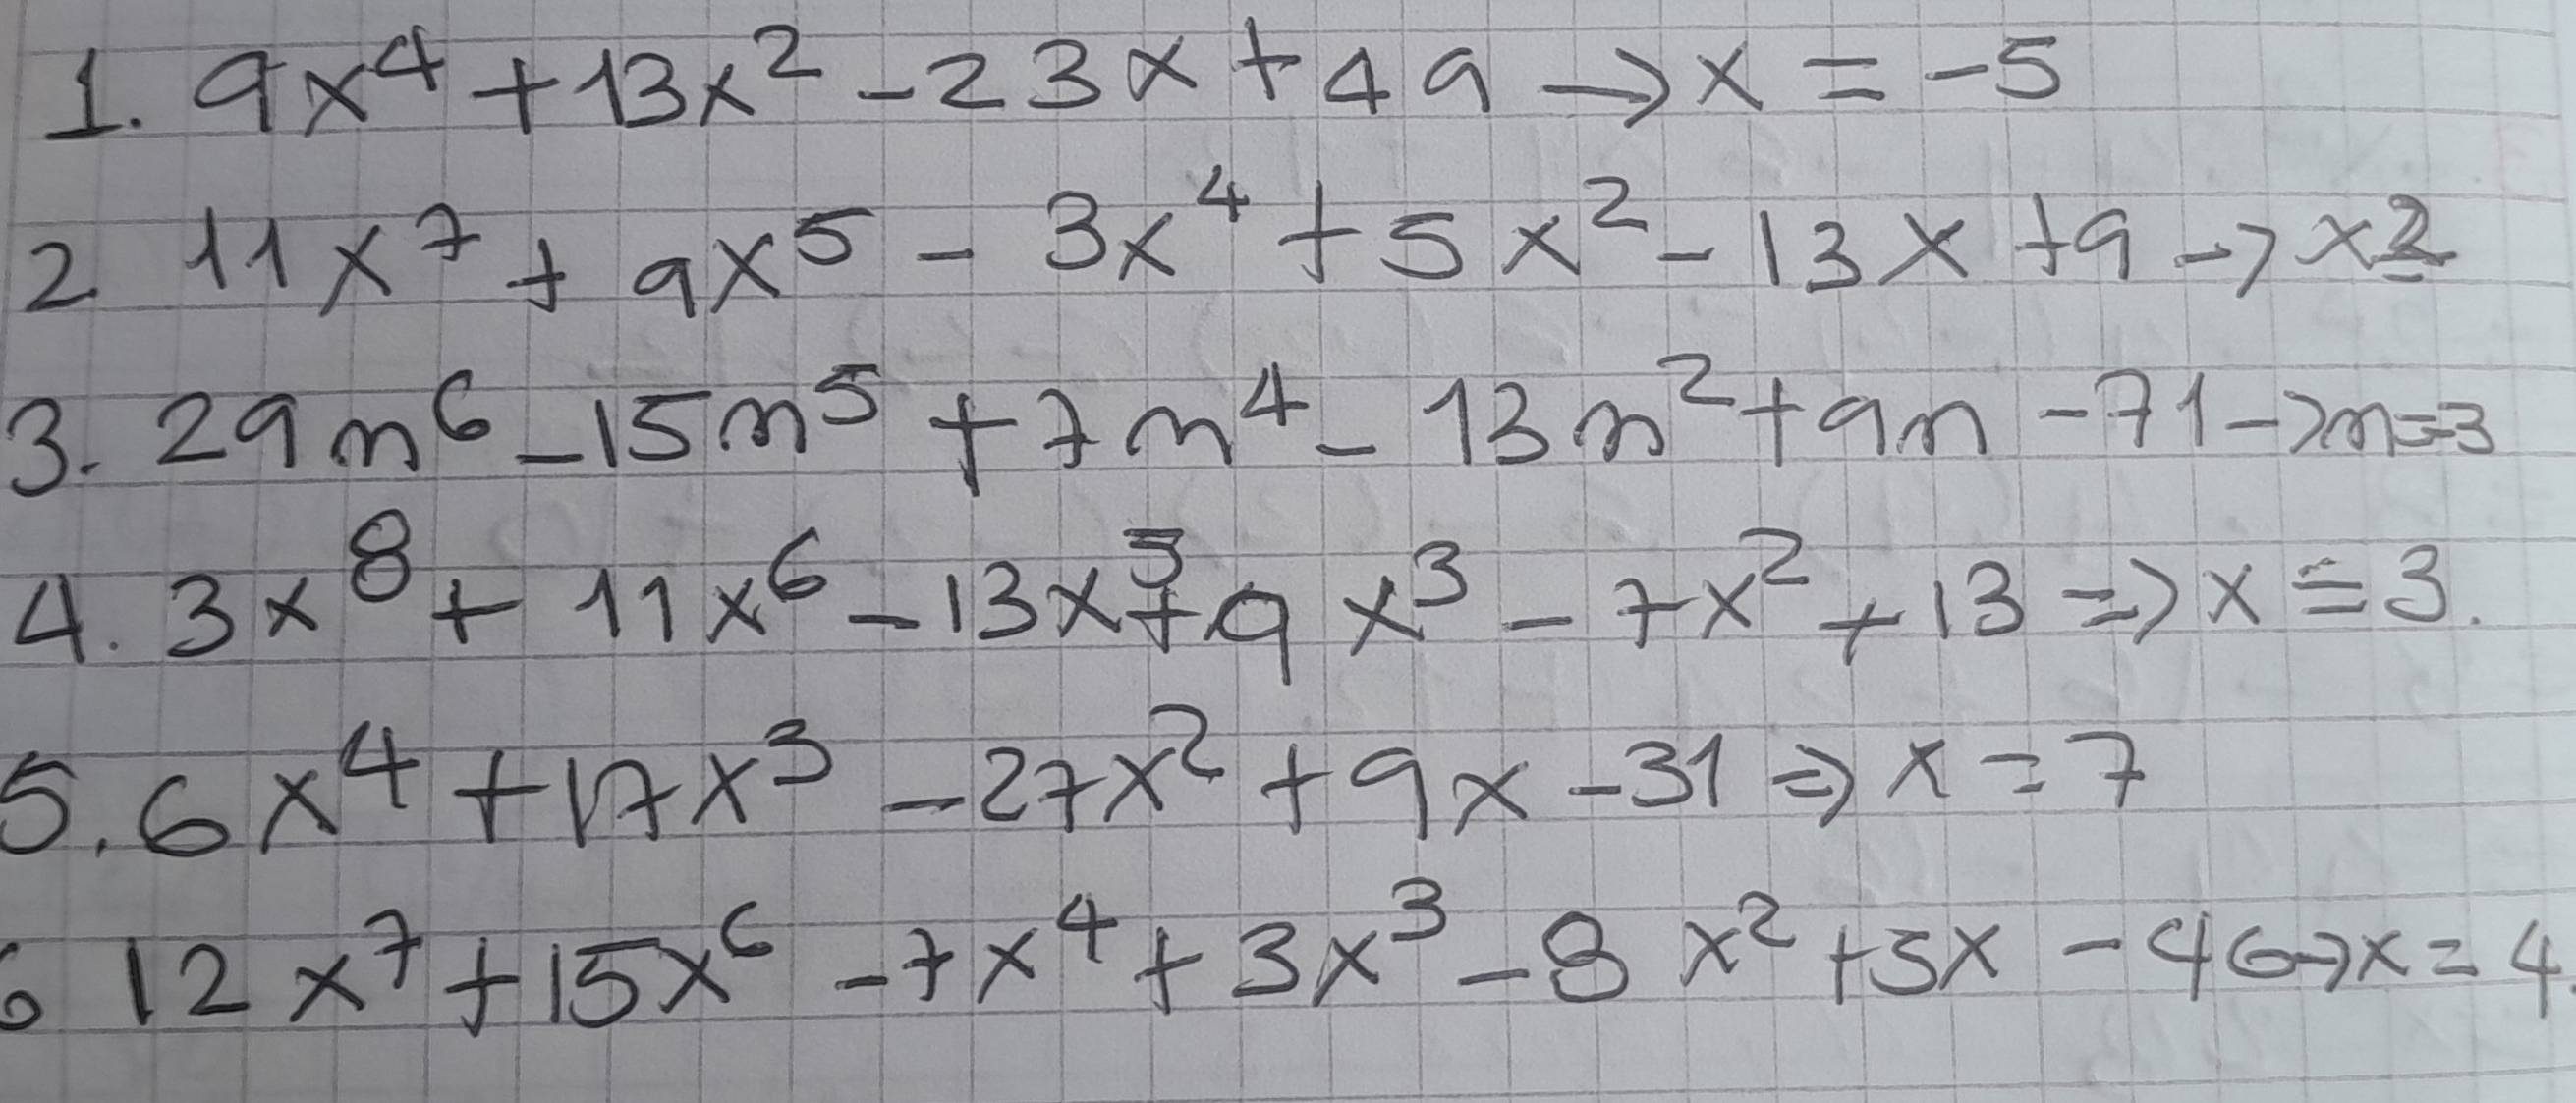 1. 9x⁴ + 13x² - 23x + 49 → x = -5
2 11x⁷ + 9x⁵ - 3x⁴ + 5x² - 13x + 9 → x 2
3. 29n⁶ - 15n⁵ + 7n⁴ - 13n² + 9n - 71 → n = 3
4. 3x⁸ + 11x⁶ - 13x⁵ + 9x³ - 7x² + 13 ⇒ x = 3.
5. 6x⁴ + 17x³ - 27x² + 9x - 31 ⇒ x = 7
6 12x⁷ + 15x⁶ - 7x⁴ + 3x³ - 8x² + 5x - 46 → x = 4.